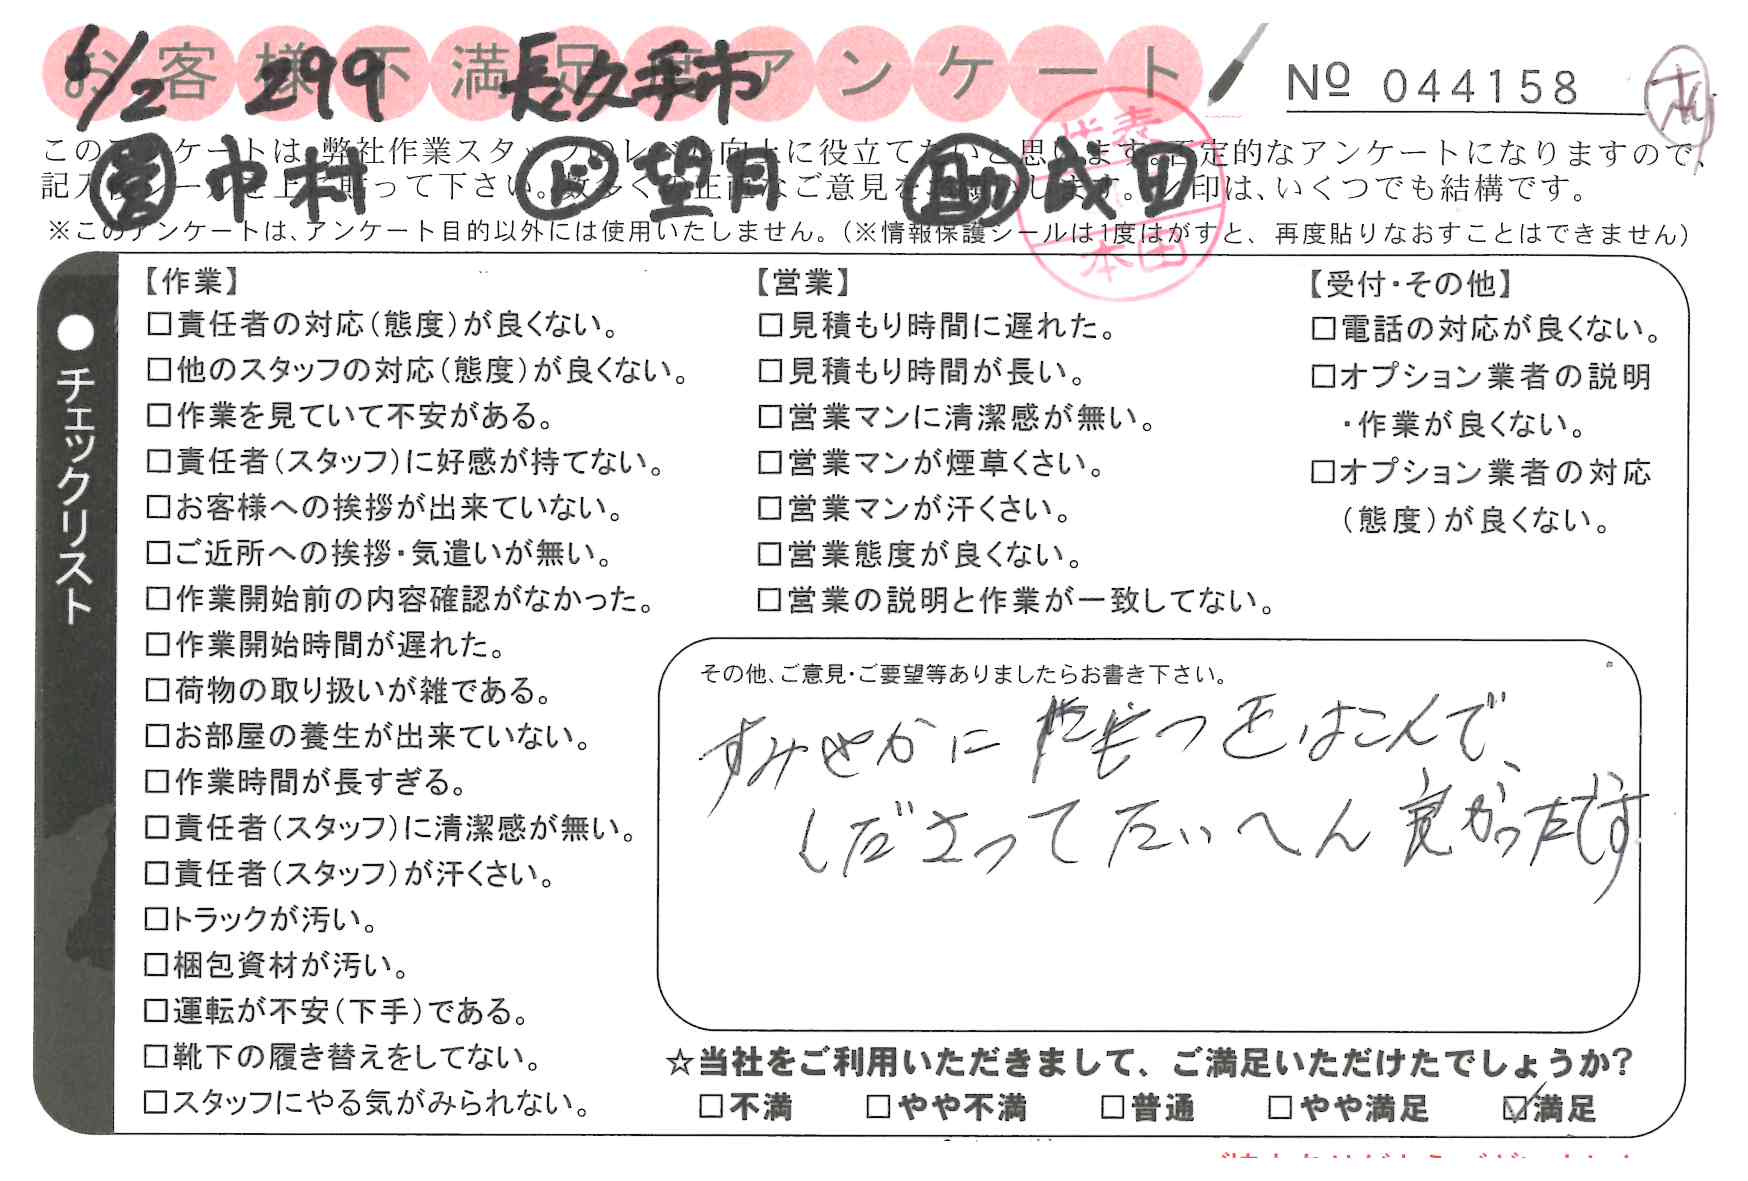 お客様不満足度アンケート
6/2 299 長久手市
№ 044158
このアンケートは、弊社作業スタッフのレベル向上に役立てたいと思います。否定的なアンケートになりますので、
記入後シールを上に貼って下さい。数多くの正直なご意見をお願いします。レ印は、いくつでも結構です。
営 中村 ド 望月 助 成田
代表
本田
※このアンケートは、アンケート目的以外には使用いたしません。(※情報保護シールは1度はがすと、再度貼りなおすことはできません)
●チェックリスト
【作業】
□責任者の対応(態度)が良くない。
□他のスタッフの対応(態度)が良くない。
□作業を見ていて不安がある。
□責任者(スタッフ)に好感が持てない。
□お客様への挨拶が出来ていない。
□ご近所への挨拶・気遣いが無い。
□作業開始前の内容確認がなかった。
□作業開始時間が遅れた。
□荷物の取り扱いが雑である。
□お部屋の養生が出来ていない。
□作業時間が長すぎる。
□責任者(スタッフ)に清潔感が無い。
□責任者(スタッフ)が汗くさい。
□トラックが汚い。
□梱包資材が汚い。
□運転が不安(下手)である。
□靴下の履き替えをしてない。
□スタッフにやる気がみられない。
【営業】
□見積もり時間に遅れた。
□見積もり時間が長い。
□営業マンに清潔感が無い。
□営業マンが煙草くさい。
□営業マンが汗くさい。
□営業態度が良くない。
□営業の説明と作業が一致してない。
【受付・その他】
□電話の対応が良くない。
□オプション業者の説明
・作業が良くない。
□オプション業者の対応
(態度)が良くない。
その他、ご意見・ご要望等ありましたらお書き下さい。
すみやかに にもつをはこんで
くださってたいへん良かったです
☆当社をご利用いただきまして、ご満足いただけたでしょうか?
□不満 □やや不満 □普通 □やや満足 ☑満足